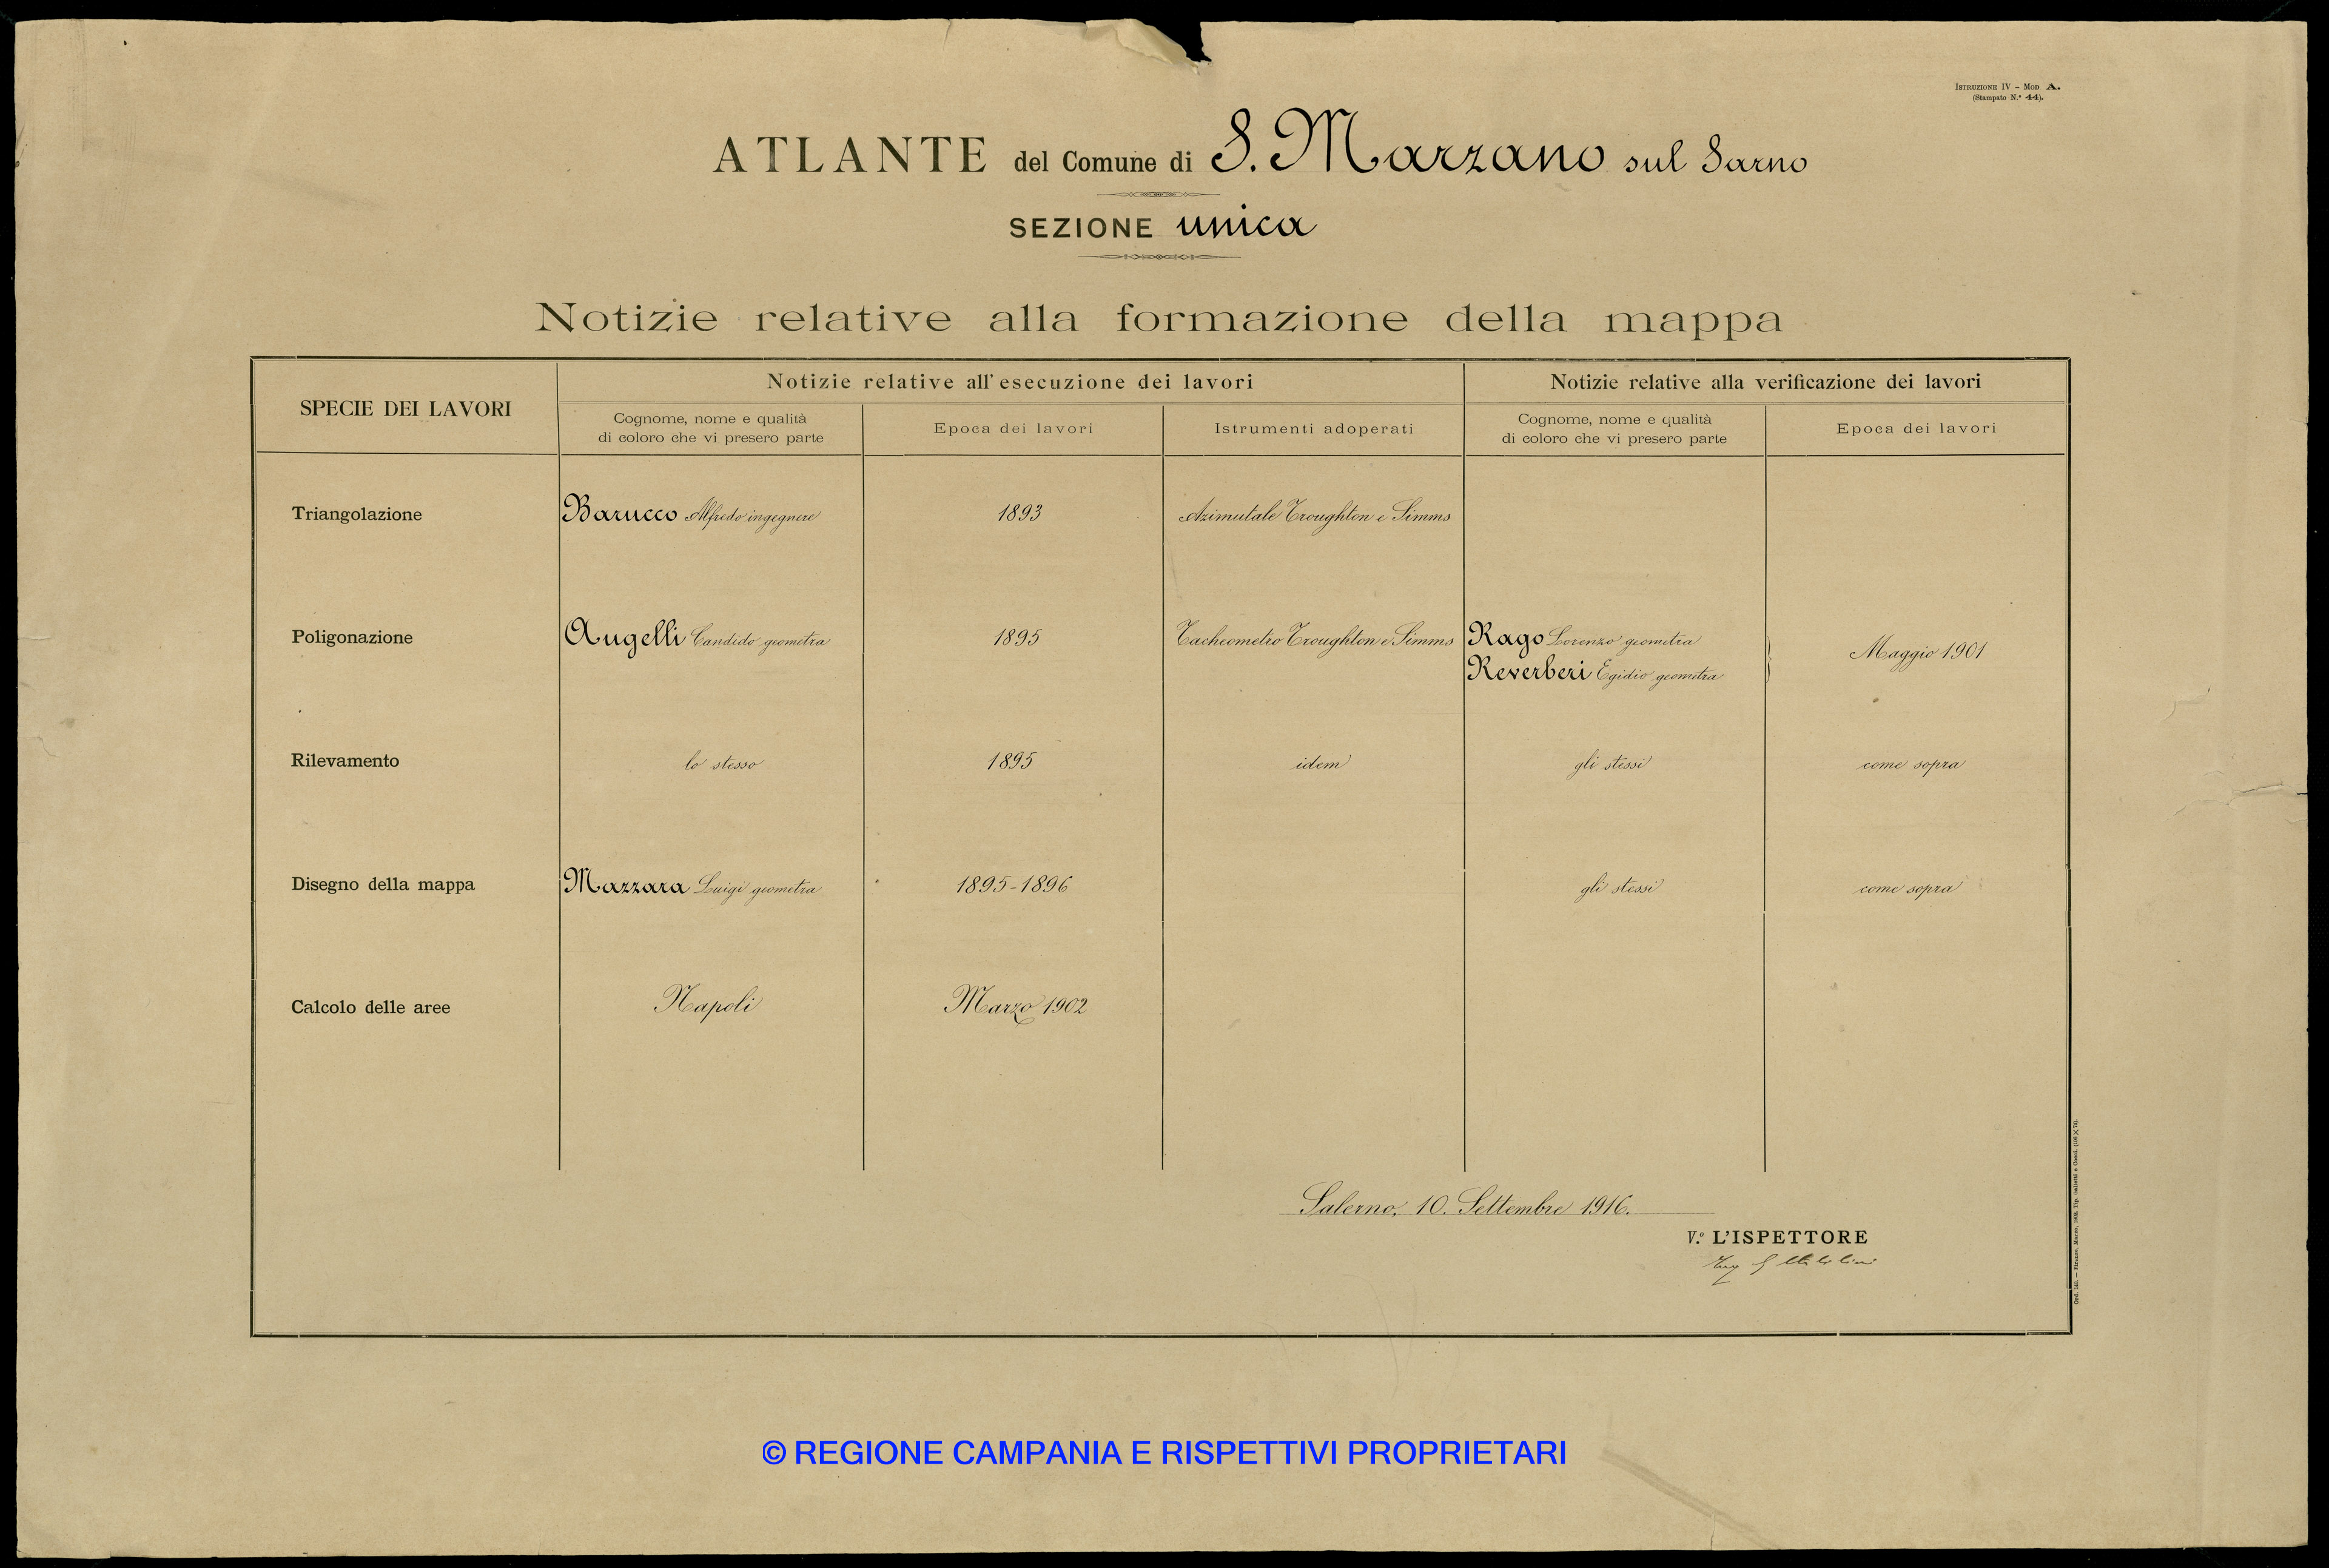 ISTRUZIONE IV - MOD A.
(Stampato N.° 44).
ATLANTE del Comune di S. Marzano sul Sarno
SEZIONE unica
Notizie relative alla formazione della mappa
SPECIE DEI LAVORI
Notizie relative all'esecuzione dei lavori
Notizie relative alla verificazione dei lavori
Cognome, nome e qualità
di coloro che vi presero parte
Epoca dei lavori
Istrumenti adoperati
Cognome, nome e qualità
di coloro che vi presero parte
Epoca dei lavori
Triangolazione Barucco Alfredo ingegnere 1893 Azimutale Troughton e Simms
Poligonazione Augelli Candido geometra 1895 Tacheometro Troughton e Simms Rago Lorenzo geometra
Reverberi Egidio geometra Maggio 1901
Rilevamento lo stesso 1895 idem gli stessi come sopra
Disegno della mappa Mazzara Luigi geometra 1895-1896 gli stessi come sopra
Calcolo delle aree Napoli Marzo 1902
Salerno, 10. Settembre 1916.
V.° L'ISPETTORE
Ord. 140. — Firenze, Marzo, 1902. Tip. Galletti e Cocci. (106 X 74).
© REGIONE CAMPANIA E RISPETTIVI PROPRIETARI